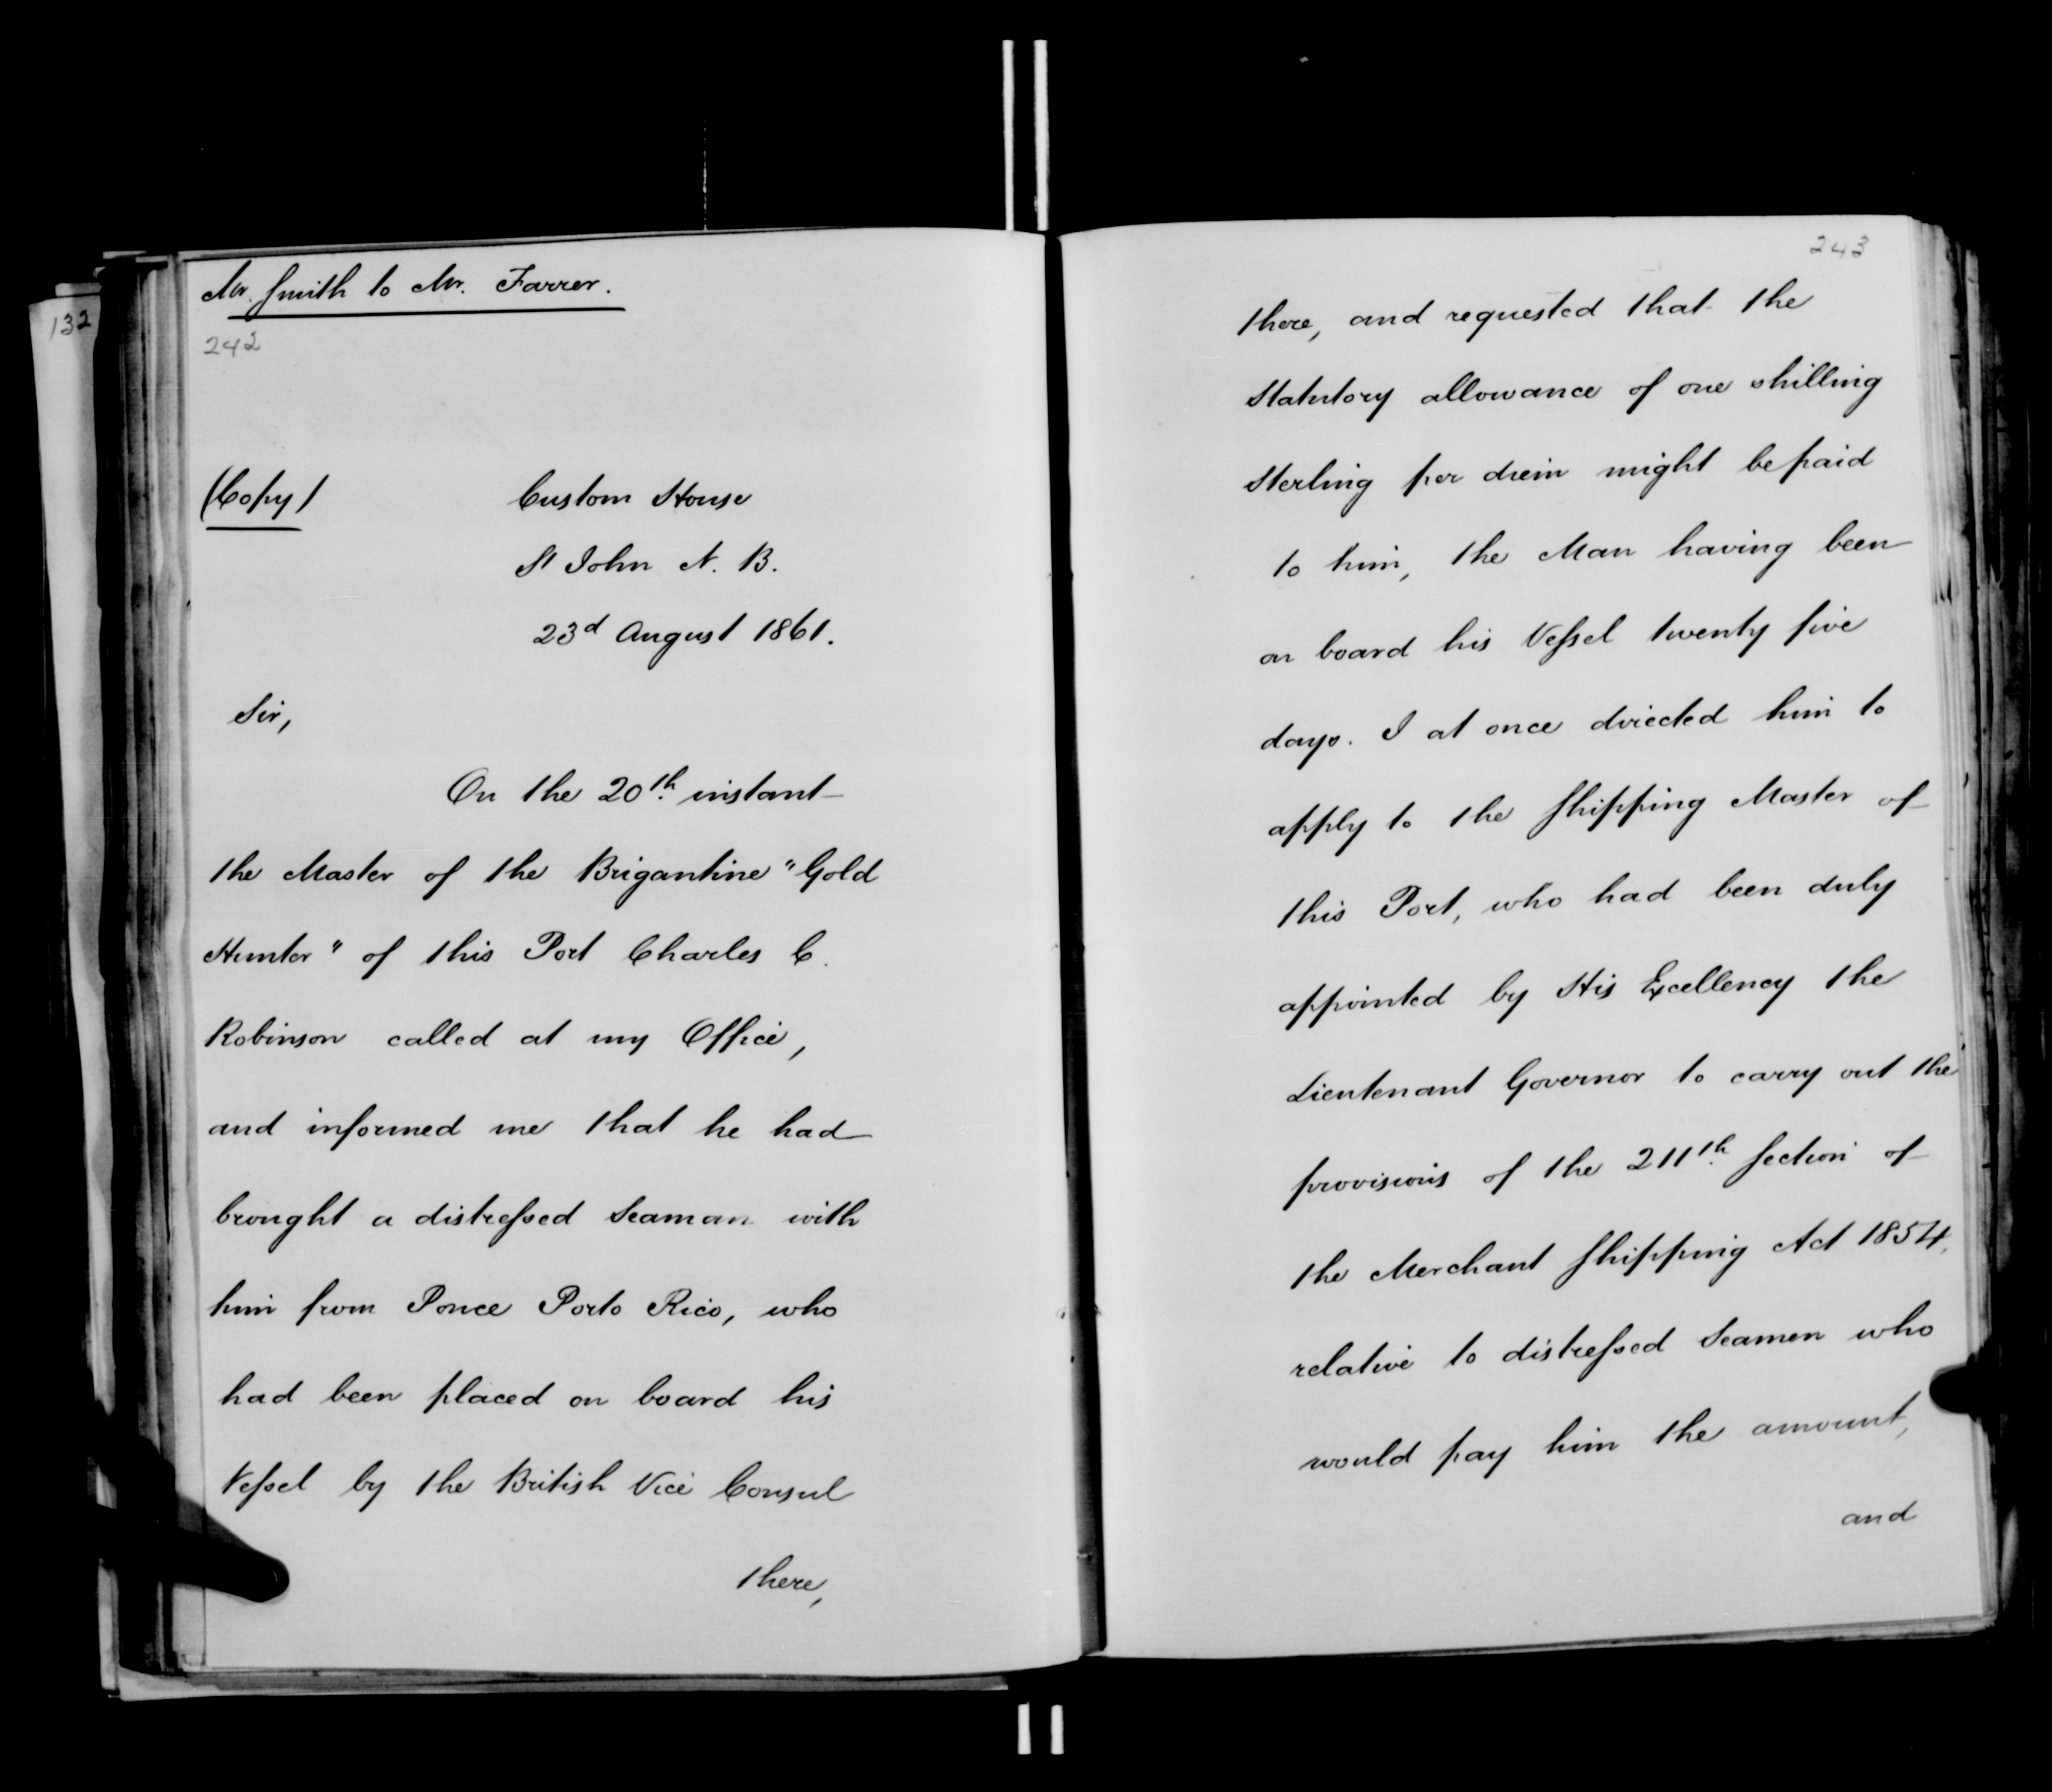 132
Mr. Smith to Mr. Farrer.
242
(Copy)
Custom House
St John N. B.
23d August 1861.
Sir,
On the 20th. instant
the Master of the Brigantine "Gold
Hunter" of this Port Charles C.
Robinson called at my Office,
and informed me that he had
brought a distressed Seaman with
him from Ponce Porto Rico, who
had been placed on board his
Vessel by the British Vice Consul
there,
243
there, and requested that the
Statutory allowance of one shilling
Sterling per diem might be paid
to him, the Man having been
on board his Vessel twenty five
days. I at once directed him to
apply to the Shipping Master of
this Port, who had been duly
appointed by His Excellency the
Lieutenant Governor to carry out the
provisions of the 211th. Section of
the Merchant Shipping Act 1854,
relative to distressed Seamen who
would pay him the amount,
and